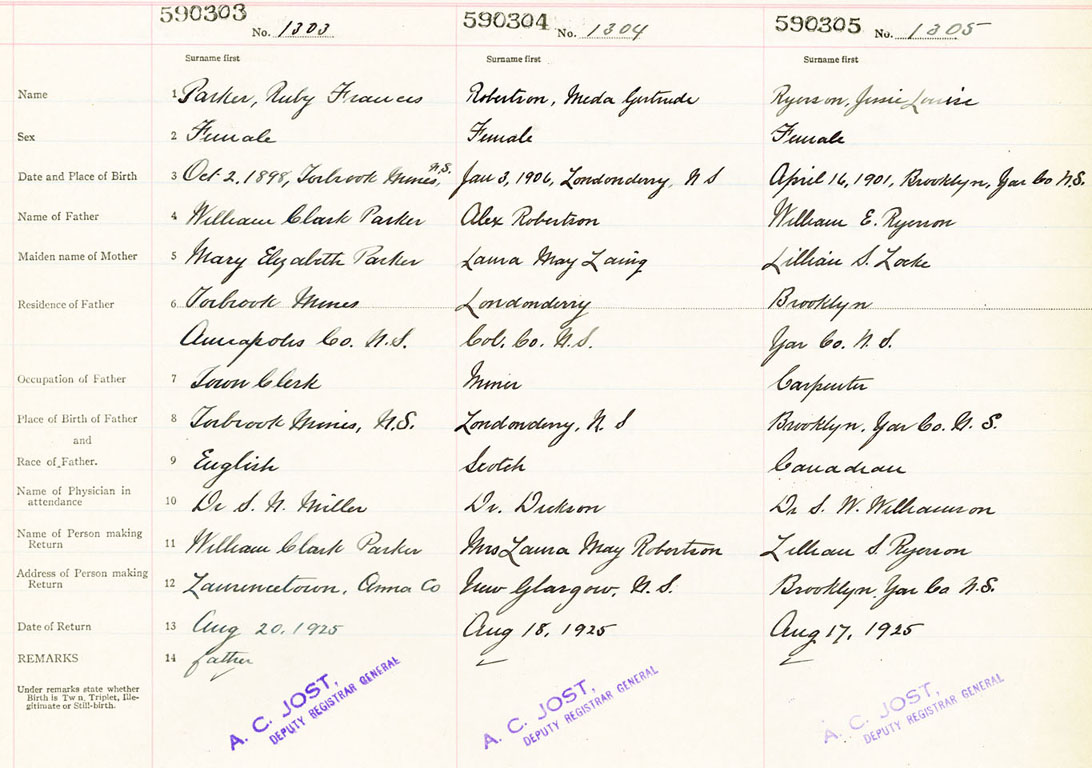 590303 590304 590305
No. 1303 No. 1304 No. 1305
Surname first Surname first Surname first
Name 1 Parker, Ruby Frances Robertson, Meda Gertrude Ryerson, Jessie Louise
Sex 2 Female Female Female
Date and Place of Birth 3 Oct 2, 1898, Torbrook Mines, N.S. Jan 3, 1906, Londonderry, N S April 16, 1901, Brooklyn, Yar Co N.S.
Name of Father 4 William Clark Parker Alex Robertson William E. Ryerson
Maiden name of Mother 5 Mary Elizabeth Parker Laura May Laing Lillian S. Locke
Residence of Father 6 Torbrook Mines Londonderry Brooklyn
Annapolis Co. N.S. Col. Co. N.S. Yar Co. N.S.
Occupation of Father 7 Town Clerk Miner Carpenter
Place of Birth of Father 8 Torbrook Mines, N.S. Londonderry, N. S Brooklyn, Yar Co. N. S.
and
Race of Father. 9 English Scotch Canadian
Name of Physician in
attendance 10 Dr S. N. Miller Dr. Dickson Dr S. W. Williamson
Name of Person making
Return 11 William Clark Parker Mrs Laura May Robertson Lillian S. Ryerson
Address of Person making
Return 12 Laurencetown, Anna Co New Glasgow, N. S. Brooklyn, Yar Co N.S.
Date of Return 13 Aug 20, 1925 Aug 18, 1925 Aug 17, 1925
REMARKS 14 father
Under remarks state whether
Birth is Twin, Triplet, Ille-
gitimate or Still-birth.
A. C. JOST, A. C. JOST, A. C. JOST,
DEPUTY REGISTRAR GENERAL DEPUTY REGISTRAR GENERAL DEPUTY REGISTRAR GENERAL